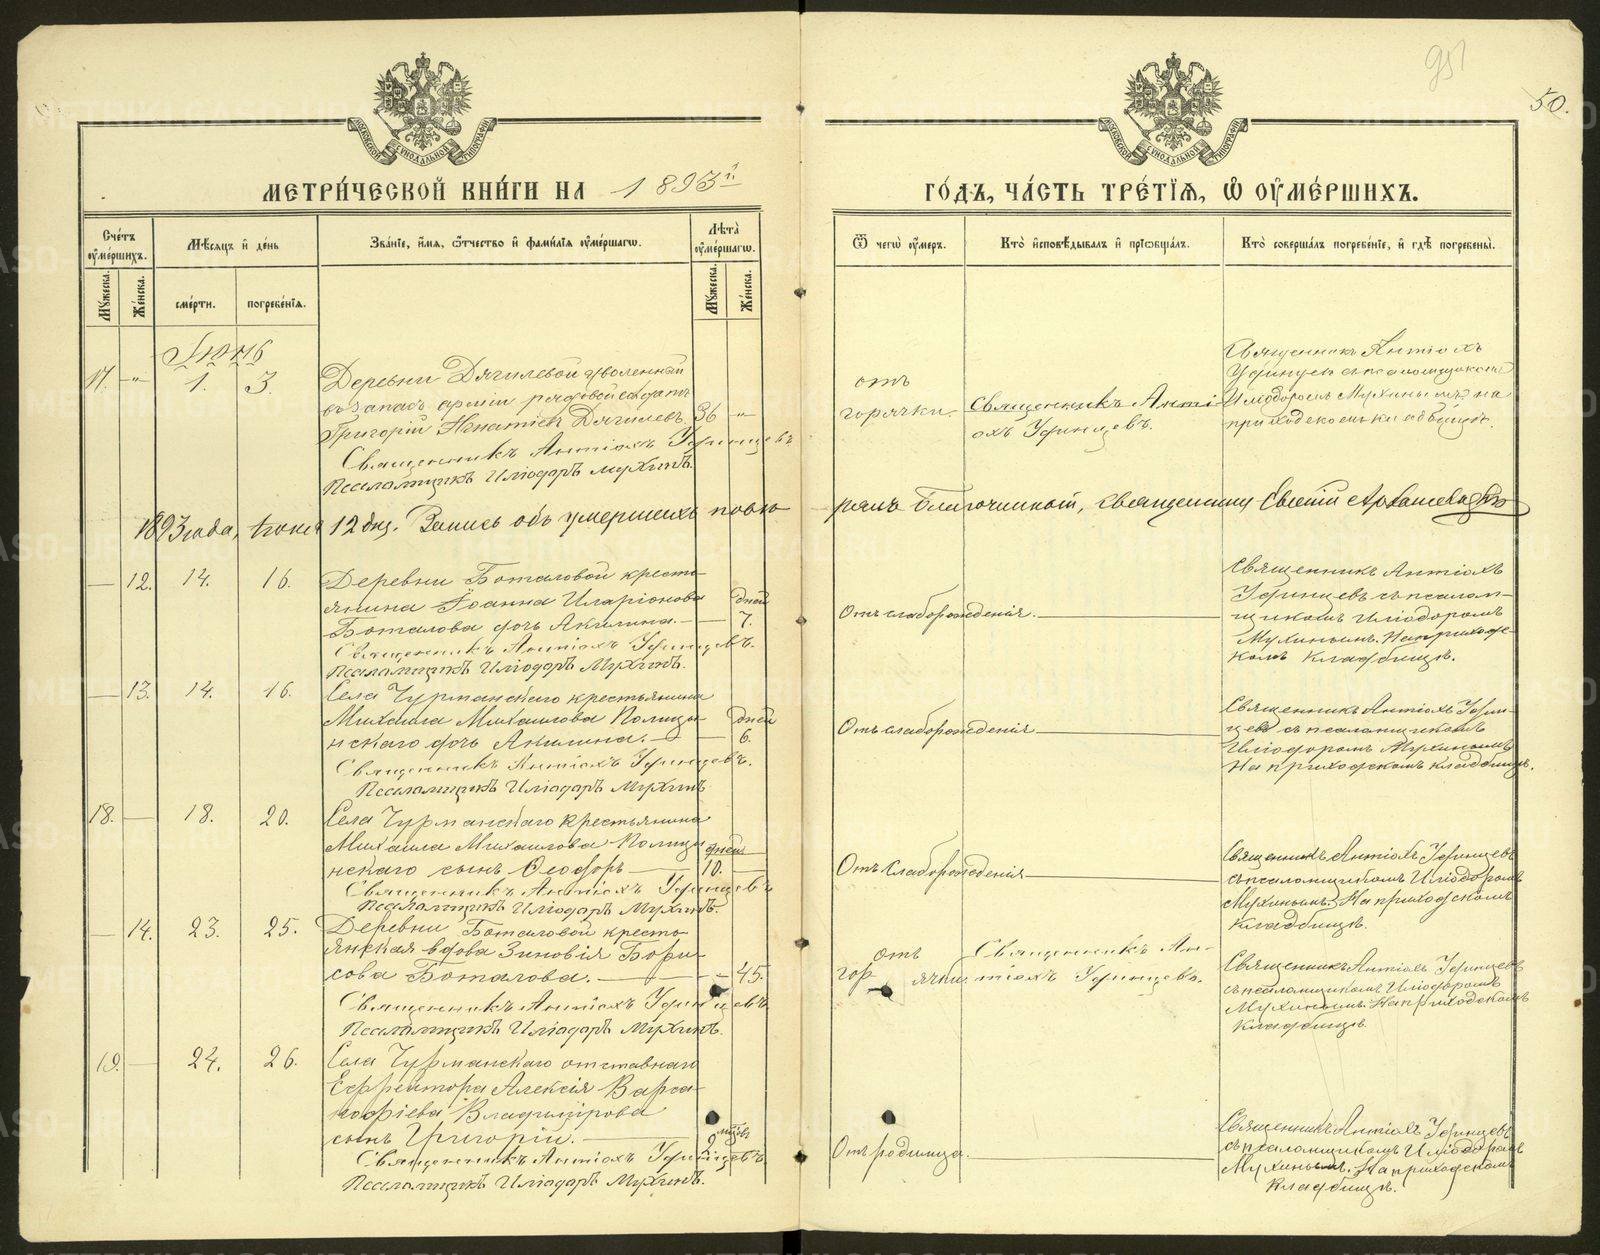 951
50.
МОСКОВСКОЙ СѴНОДАЛЬНОЙ ТИПОГРАФІИ
МОСКОВСКОЙ СѴНОДАЛЬНОЙ ТИПОГРАФІИ
МЕТРИ́ЧЕСКОЙ КНИ́ГИ НА 1893й
ГО́ДЪ, ЧА́СТЬ ТРЕ́ТІЯ, Ѡ ОУМЕ́РШИХЪ.
Счетъ оумершихъ.
Мѣсяцъ и день
Званіе, имя, отчество и фамилія оумершагѡ.
Лѣта оумершагѡ.
Ѿ чегѡ оумеръ.
Кто исповѣдывалъ и пріобщалъ.
Кто совершалъ погребеніе, и гдѣ погребены.
Мужеска.
Женска.
смерти.
погребенія.
Мужеска.
Женска.
Іюнь
17. -„- 1. 3.
Деревни Дягилевой уволенный
въ запасъ арміи рядовой солдатъ
Григорій Игнатіевъ Дягилевъ. 36 -„-
Священникъ Антіохъ Уфинцевъ
Псаломщикъ Иліодоръ Мухинъ.
отъ
горячки.
Священникъ Анті-
охъ Уфинцевъ.
Священникъ Антіохъ
Уфинцевъ съ псаломщикомъ
Иліодоромъ Мухинымъ на
приходскомъ кладбищѣ.
1893 года, іюня 12 дня. Запись объ умершихъ повѣ
рялъ Благочинный, священникъ Евгеній
12. 14. 16.
Деревни Боталовой кресть-
янина Іоанна Иларіонова
Боталова дочь Акилина. дней 7.
Священникъ Антіохъ Уфинцевъ.
Псаломщикъ Иліодоръ Мухинъ.
Отъ слаборожденія.
Священникъ Антіохъ
Уфинцевъ съ псалом-
щикомъ Иліодоромъ
Мухинымъ. На приход-
комъ кладбищѣ.
13. 14. 16.
Села Чурманскаго крестьянина
Михаила Михаилова Полицы-
нскаго дочь Акилина. дней 6.
Священникъ Антіохъ Уфинцевъ.
Псаломщикъ Иліодоръ Мухинъ
Отъ слаборожденія
Священникъ Антіохъ Уфин-
цевъ съ псаломщикомъ
Иліодоромъ Мухинымъ
На приходскомъ кладбищѣ.
18. 18. 20.
Села Чурманскаго крестьянина
Михаила Михаилова Полицы
нскаго сынъ Ѳеодоръ дней 10.
Священникъ Антіохъ Уфинцевъ
Псаломщикъ Иліодоръ Мухинъ.
Отъ слаборожденія
Священникъ Антіохъ Уфинцевъ
съ псаломщикомъ Иліодоромъ
Мухинымъ. На приходскомъ
кладбищѣ.
14. 23. 25.
Деревни Боталовой кресть-
янская вдова Зиновія Бори-
сова Боталова. 45.
Священникъ Антіохъ Уфинцевъ
Псаломщикъ Иліодоръ Мухинъ.
отъ
горячки
Священникъ Ан-
тіохъ Уфинцевъ.
Священникъ Антіохъ Уфинцевъ
съ псаломщикомъ Иліодоромъ
Мухинымъ. На приходскомъ
кладбищѣ.
19. 24. 26.
Села Чурманскаго отставнаго
Ефрейтора Алексія Варса-
нофіева Владимірова
сынъ Григорій. 9 мцовъ
Священникъ Антіохъ Уфинцевъ
Псаломщикъ Иліодоръ Мухинъ.
Отъ родимца.
Священникъ Антіохъ Уфинцевъ
съ псаломщикомъ Иліодоромъ
Мухинымъ. На приходскомъ
кладбищѣ.